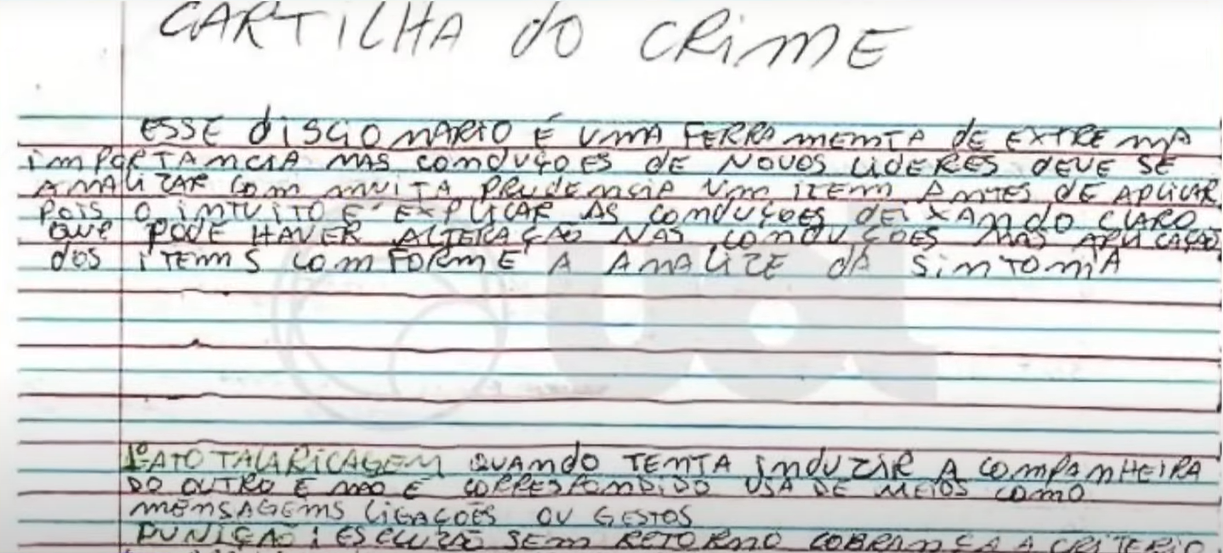 CARTILHA do CRIME
ESSE diSCiONARIO É UMA FERRAMENTA dE EXTREMA
imPORTANCIA NAS CONDUÇOES dE NOVOS LIDERES DEVE SE
ANALIZAR COM MUITA PRUDENCIA UM ITEM ANTES DE APLICAR
POIS O iNTUITO E EXPLICAR AS CONDUÇOES DEIXANDO CLARO
QUE PODE HAVER ALTERAÇÃO NAS CONDUÇOES NAS APLICAÇÃO
dOS iTEMS COMFORME A ANALIZE dA SiNTONIA
uol
1º ATO TALARICAGEM QUANdO TENTA iNdUZIR A COMPANHEIRA
DO OUTRO E NÃO E CORRESPONDIDO USA DE MEIOS COMO
MENSAGEMS LIGAÇÕES OU GESTOS
PUNIÇÃO: ESCLUZÃO SEM RETORNO COBRANÇA A CRITERIO